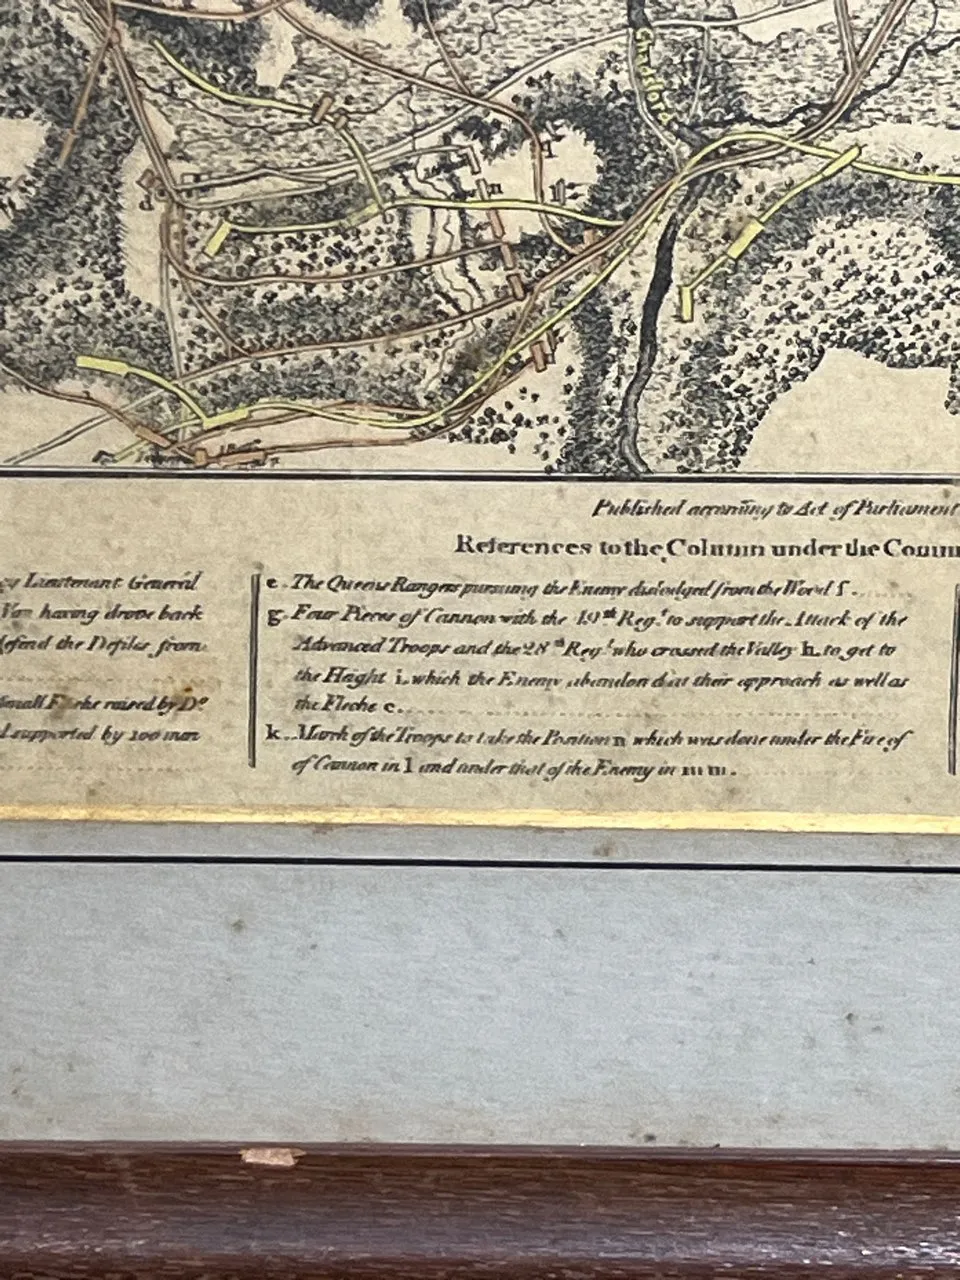 Chadsford
Published according to Act of Parliament
References to the Column under the
Lieutenant General
Van having drove back
defend the Defiles from
small Fleche raised by D.º
supported by 100 men
e. The Queens Rangers pursuing the Enemy dislodged from the Wood f.
g. Four Pieces of Cannon with the Reg.t to support the Attack of the
Advanced Troops and the 28th Reg.t who crossed the Valley h. to get to
the Haight i. which the Enemy abandon'd at their approach as well as
the Fleche c.
k. March of the Troops to take the Position n which was done under the Fire of
of Cannon in l and under that of the Enemy in m m.